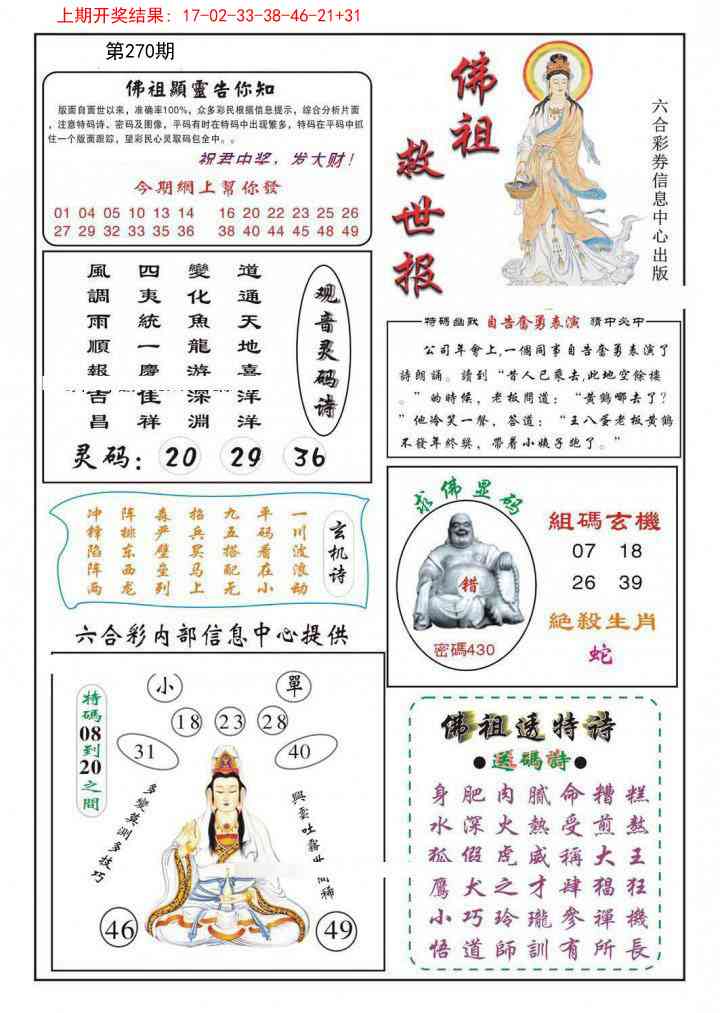 上期开奖结果：17-02-33-38-46-21+31
第270期
佛祖顯靈告你知
版面自面世以来，准确率100%，众多彩民根据信息提示，综合分析片面
，注意特码诗、密码及图像，平码有时在特码中出现繁多，特码在平码中抓
住一个版面跟踪，望彩民心灵取码包全中。。
祝君中奖，发大财！
今期網上幫你發
01 04 05 10 13 14 16 20 22 23 25 26
27 29 32 33 35 36 38 40 44 45 48 49
佛祖救世报
六合彩券信息中心出版
道通天地喜洋洋
變化魚龍游深淵
四夷統一慶佳祥
風調雨順報吉昌
观音灵码诗
灵码：20 29 36
特碼幽默 自告奮勇表演 猜中必中
公司年會上,一個同事自告奮勇表演了
詩朗誦。讀到“昔人已乘去,此地空餘樓
。”的時候，老板問道：“黄鶴哪去了？
”他冷笑一聲，答道：“王八蛋老板黄鶴
不發年終獎，帶着小姨子跑了。”
玄机诗
一川波浪动
平码看在小
九五搭配无
招兵买马上
森严壁垒列
阵排东西龙
冲锋陷阵两
求佛显码
錯
密碼430
組碼玄機
07 18
26 39
絶殺生肖
蛇
六合彩内部信息中心提供
特碼08到20之間
小 單
18 23 28
31 40
多變莫測多技巧
興雲吐霧世間稀
46 49
佛祖透特诗
●送碼詩●
身肥肉膩命糟糕
水深火熱受煎熬
狐假虎威稱大王
鷹犬之才肆猖狂
小巧玲瓏參禪機
悟道師訓有所長